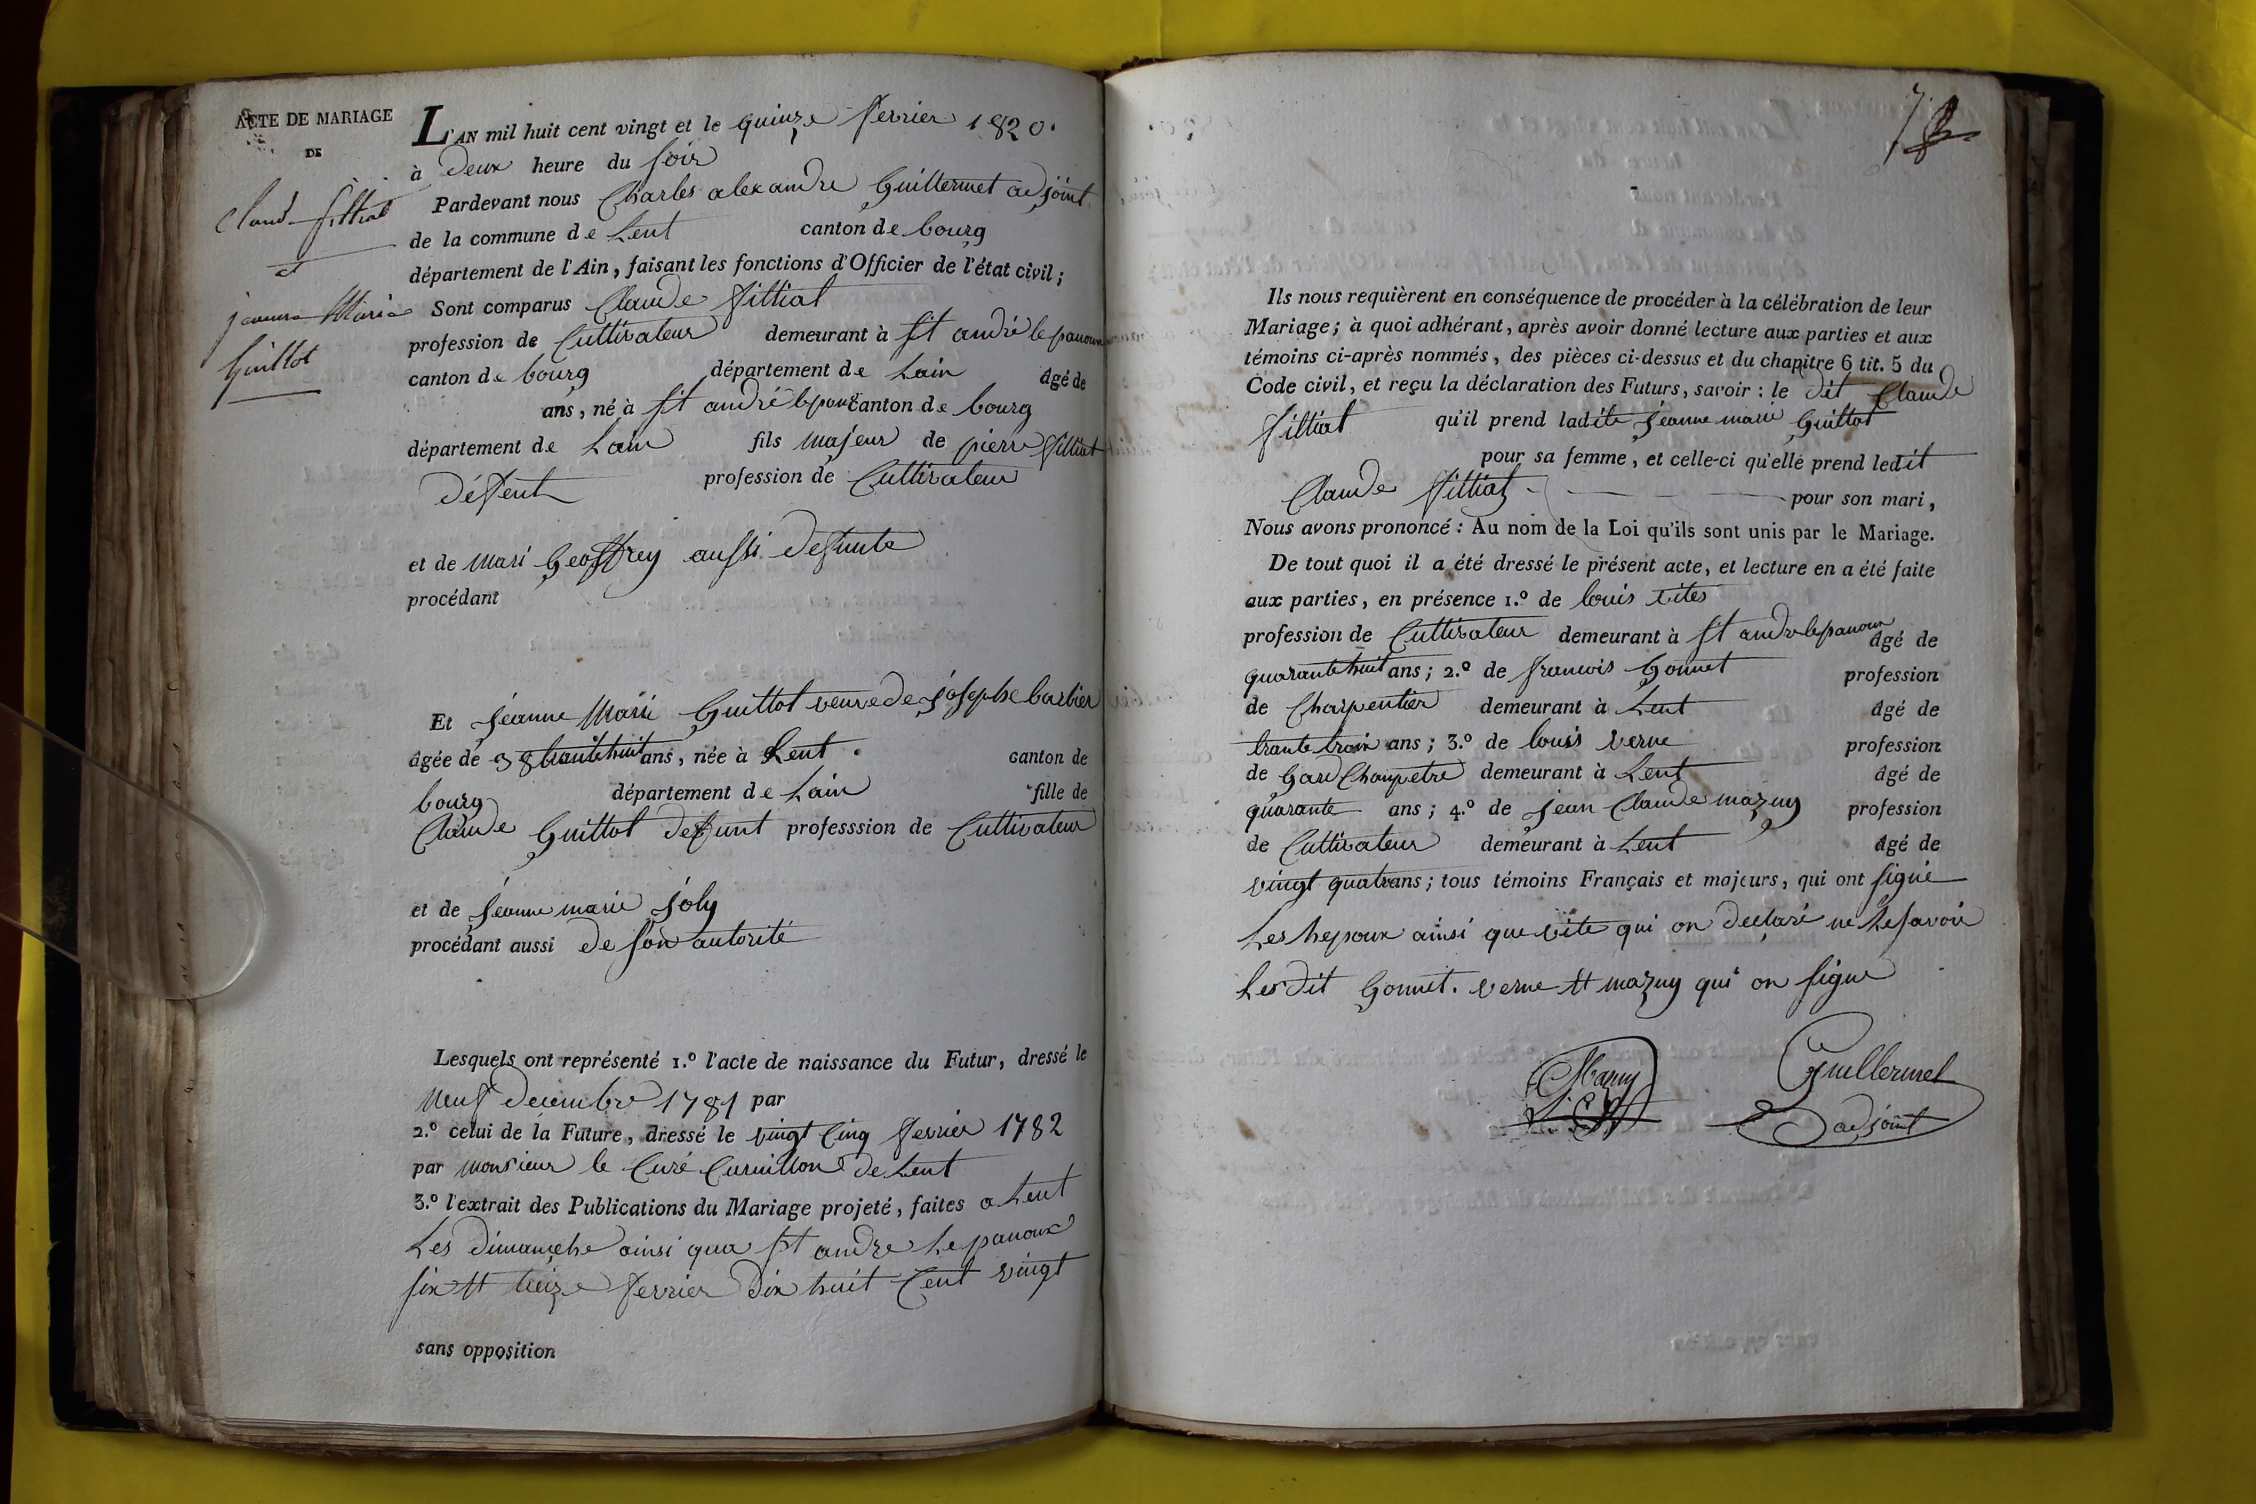 ACTE DE MARIAGE
DE
Claud fillial
et
jeanne Marie
Guillot
L'AN mil huit cent vingt et le quinze fevrier 1820.
à deux heure du soir
Pardevant nous Charles alexandre Guillermet adjoint
de la commune de Lent canton de bourg
département de l'Ain, faisant les fonctions d'Officier de l'état civil;
Sont comparus Claude filliat
profession de Cultivateur demeurant à st andré le panoux
canton de bourg département de Lain âgé de
ans, né à st andré le panx canton de bourg
département de Lain fils majeur de pierre filliat
défent profession de Cultivateur
et de mari Geoffrey aussi defunte
procédant
Et jéanne Marie Guillot veuve de joseph barbier
âgée de 38 trante huit ans, née à Lent. canton de
bourg département de Lain fille de
Claude Guillot defunt professsion de Cultivateur
et de jéanne marie joly
procédant aussi de son autorité
Lesquels ont représenté 1.º l'acte de naissance du Futur, dressé le
neuf decembre 1781 par
2.º celui de la Future, dressé le vingt Cinq fevrier 1782
par monsieur le Curé de Lent
3.º l'extrait des Publications du Mariage projeté, faites a Lent
Les dimanche ainsi qua st andre Le panoux
six et treize fevrier dix huit Cent vingt
sans opposition
7
Ils nous requièrent en conséquence de procéder à la célébration de leur
Mariage; à quoi adhérant, après avoir donné lecture aux parties et aux
témoins ci-après nommés, des pièces ci-dessus et du chapitre 6 tit. 5 du
Code civil, et reçu la déclaration des Futurs, savoir: le dit Claude
filliat qu'il prend ladite jéanne marie Guillot
pour sa femme, et celle-ci qu'elle prend ledit
Claude filliat pour son mari,
Nous avons prononcé: Au nom de la Loi qu'ils sont unis par le Mariage.
De tout quoi il a été dressé le présent acte, et lecture en a été faite
aux parties, en présence 1.º de louis vites
profession de Cultivateur demeurant à st andre le panoux âgé de
quarante huit ans; 2.º de francois Gonnet profession
de Charpentier demeurant à Lent âgé de
trante troix ans; 3.º de louis verne profession
de Gard Champetre demeurant à Lent âgé de
quarante ans; 4.º de jean Claude mazuy profession
de Cultivateur demeurant à Lent âgé de
vingt quatre ans; tous témoins Français et majeurs, qui ont signé
Les hepoux ainsi que vite qui on declaré ne Le savoir
Les dit Gonnet. verne et mazuy qui on signe
Mazuy
Guillermet
adjoint